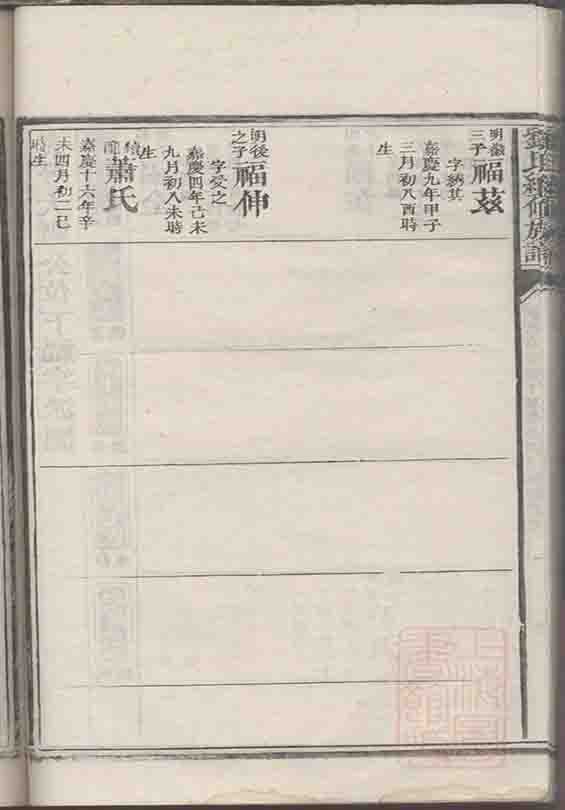 劉氏續修族譜
明嶽
三子
福茲
字納其
嘉慶九年甲子
三月初八酉時
生
明後
之子
福伸
字受之
嘉慶四年己未
九月初八未時
生
蕭氏
嘉慶十六年辛
未四月初二巳
時生
上海圖書館藏